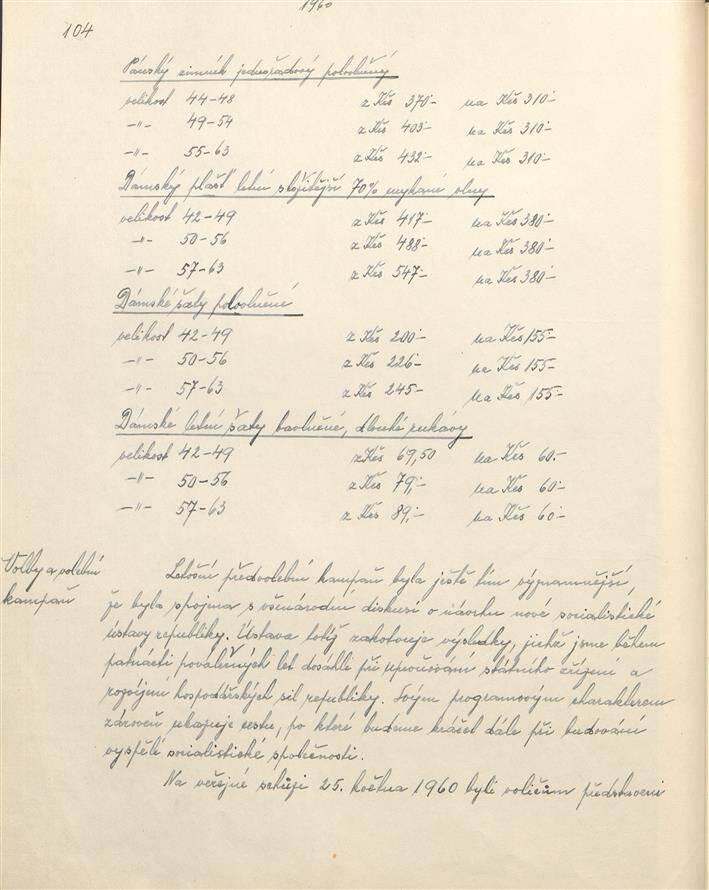 1960
104
Pánský zimník jednořadový polovlněný
velikost 44-48 z Kčs 370·- na Kčs 310·-
-"- 49-54 z Kčs 403·- na Kčs 310·-
-"- 55-63 z Kčs 432·- na Kčs 310·-
Dámský plášť letní složitější 70% mykané vlny
velikost 42-49 z Kčs 417·- na Kčs 380·-
-"- 50-56 z Kčs 488·- na Kčs 380·-
-"- 57-63 z Kčs 547·- na Kčs 380·-
Dámské šaty polovlněné
velikost 42-49 z Kčs 200·- na Kčs 155·-
-"- 50-56 z Kčs 226·- na Kčs 155·-
-"- 57-63 z Kčs 245·- na Kčs 155·-
Dámské letní šaty bavlněné, dlouhé rukávy
velikost 42-49 z Kčs 69,50 na Kčs 60.-
-"- 50-56 z Kčs 79,- na Kčs 60·-
-"- 57-63 z Kčs 89,- na Kčs 60·-
Volby a volební
kampaň
Letošní předvolební kampaň byla ještě tím významnější,
že byla spojena s všenárodní diskusí o návrhu nové socialistické
ústavy republiky. Ústava totiž zakotvuje výsledky, jichž jsme během
patnácti poválečných let dosáhli při upevňování státního zřízení a
rozvíjení hospodářských sil republiky. Svým programovým charakterem
zároveň ukazuje cestu, po které budeme kráčet dále při budování
vyspělé socialistické společnosti.
Na veřejné schůzi 25. května 1960 byli voličům představeni